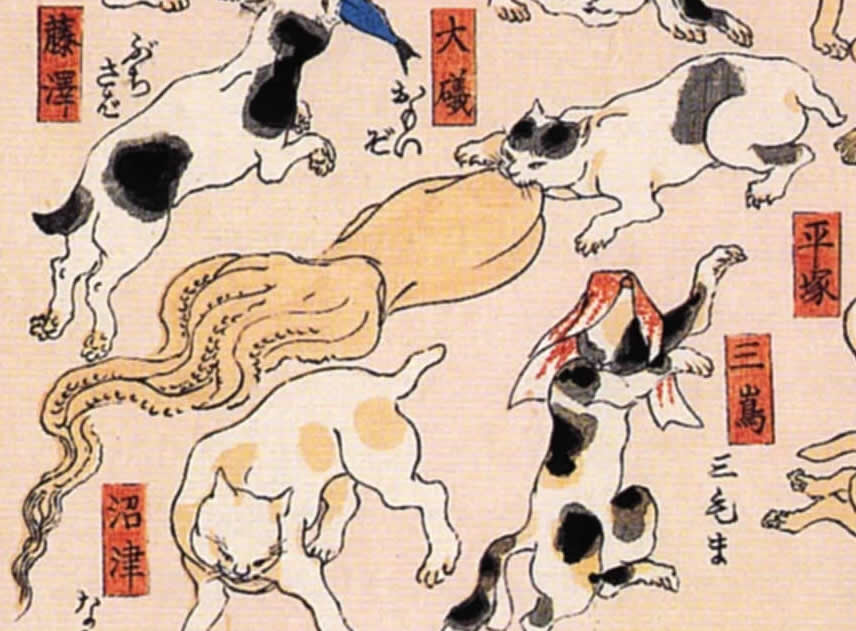 大礒
おもい
ぞ
藤澤
ぶち
さば
平塚
三嶌
三毛ま
沼津